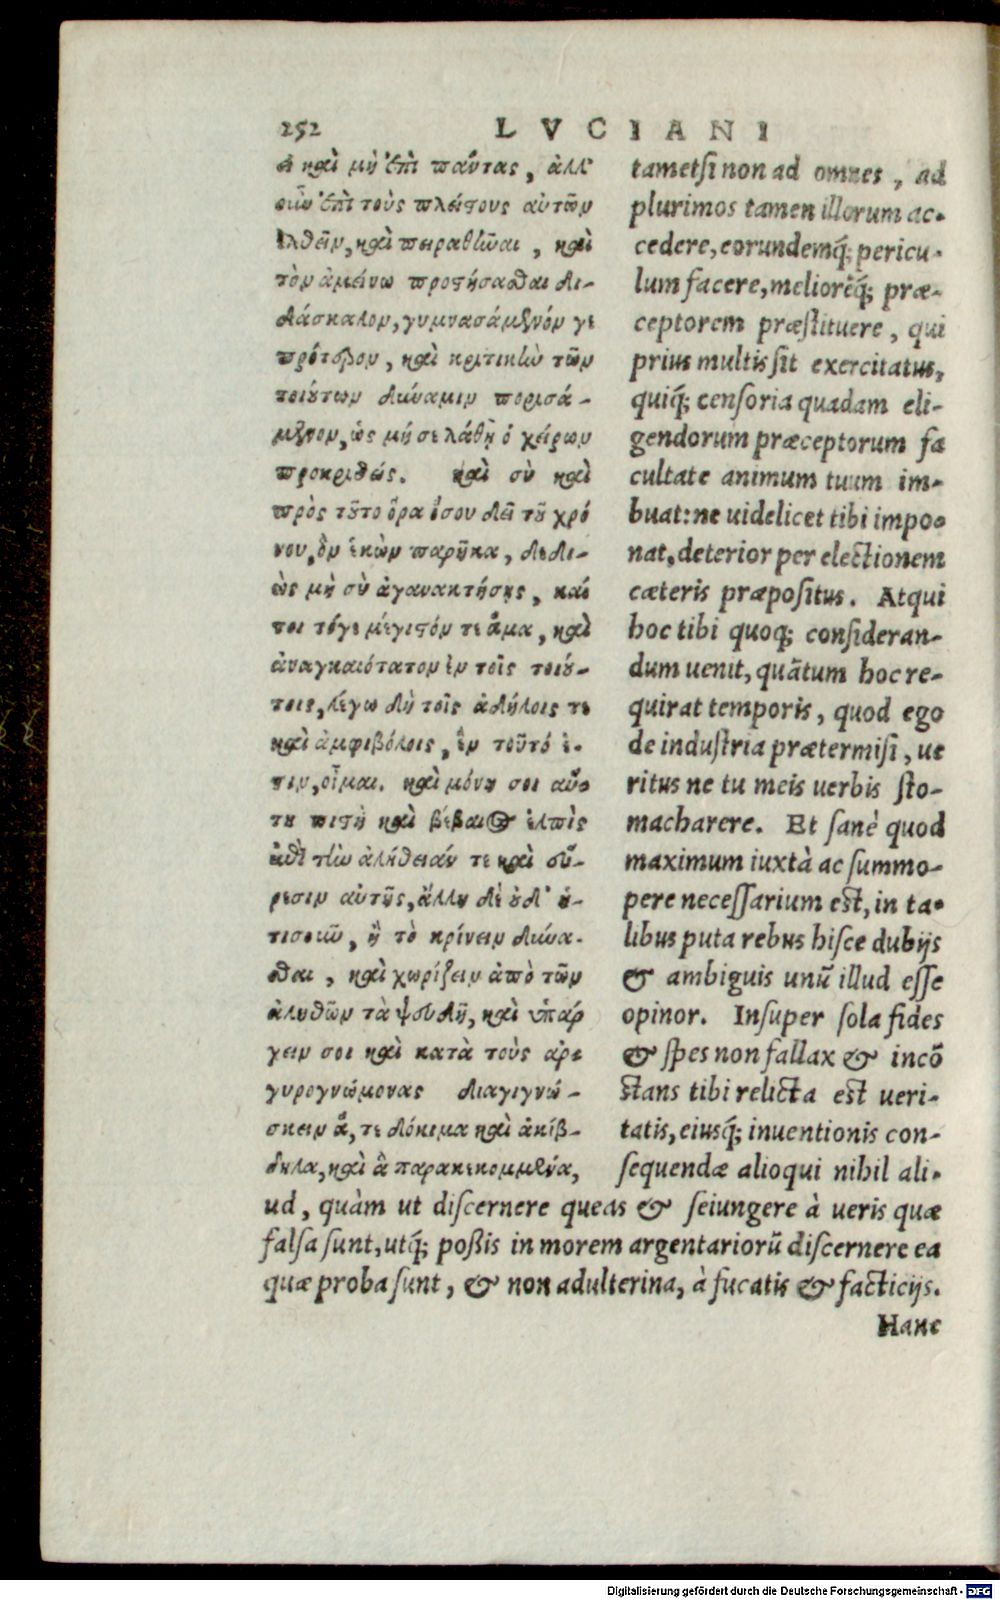 252 LVCIANI
εἰ καὶ μὴ ἐπὶ πάντας, ἀλλ'
οὖν ἐπὶ τοὺς πλείστους αὐτῶν
ἐλθεῖν, καὶ πειραθῆναι, καὶ
τὸν ἀμείνω προστήσασθαι δι-
δάσκαλον, γυμνασάμενόν γε
πρότερον, καὶ κριτικὴν τῶν
τοιούτων δύναμιν πορισά-
μενον, ὡς μή σε λάθῃ ὁ χείρων
προκριθείς. καὶ σὺ καὶ
πρὸς τοῦτο ὅρα ὅσου δεῖ τοῦ χρό
νου, ὃν ἑκὼν παρῆκα, δεδι-
ὼς μὴ σὺ ἀγανακτήσῃς, καί
τοι τόγε μέγιστόν τε ἅμα, καὶ
ἀναγκαιότατον ἐν τοῖς τοιού-
τοις, λέγω δὴ τοῖς ἀδήλοις τε
καὶ ἀμφιβόλοις, ἓν τοῦτό ἐ-
στιν, οἶμαι. καὶ μόνη σοι αὕ-
τη πιστὴ καὶ βέβαιος ἐλπὶς
ἐπὶ τὴν ἀλήθειάν τε καὶ εὕ-
ρεσιν αὐτῆς, ἄλλη δὲ οὐδ' ἡ-
τισοῦν, ἢ τὸ κρίνειν δύνα-
σθαι, καὶ χωρίζειν ἀπὸ τῶν
ἀληθῶν τὰ ψευδῆ, καὶ ὑπάρ
χειν σοι καὶ κατὰ τοὺς ἀρ-
γυρογνώμονας διαγιγνώ-
σκειν ἅ, τε δόκιμα καὶ ἀκίβ-
δηλα, καὶ ἃ παρακεκομμένα,
tametſi non ad omnes, ad
plurimos tamen illorum ac-
cedere, eorundemq́; pericu-
lum facere, meliorẽq́; præ-
ceptorem præſtituere, qui
prius multis ſit exercitatus,
quiq́; cenſoria quadam eli-
gendorum præceptorum fa
cultate animum tuum im-
buat: ne uidelicet tibi impo-
nat, deterior per electionem
cæteris præpoſitus. Atqui
hoc tibi quoq; conſideran-
dum uenit, quãtum hoc re-
quirat temporis, quod ego
de induſtria prætermiſi, ue
ritus ne tu meis uerbis ſto-
macharere. Et ſanè quod
maximum iuxtà ac ſummo-
pere neceſſarium eſt, in ta-
libus puta rebus hiſce dubijs
& ambiguis unũ illud eſſe
opinor. Inſuper ſola fides
& ſpes non fallax & incõ
ſtans tibi relicta eſt ueri-
tatis, eiusq́; inuentionis con-
ſequendæ alioqui nihil ali-
ud, quàm ut diſcernere queas & ſeiungere à ueris quæ
falſa ſunt, utq́; poßis in morem argentariorũ diſcernere ea
quæ proba ſunt, & non adulterina, à fucatis & facticijs.
Hanc
Digitalisierung gefördert durch die Deutsche Forschungsgemeinschaft - DFG